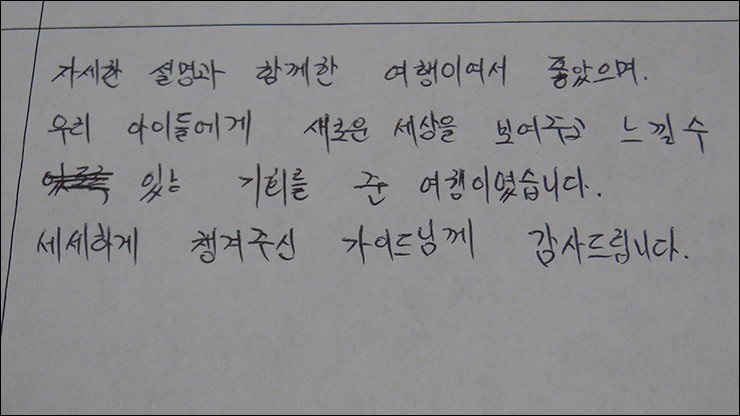 자세한 설명과 함께한 여행이여서 좋았으며.
우리 아이들에게 새로운 세상을 보여주고 느낄 수
있는 기회를 준 여행이였습니다.
세세하게 챙겨주신 가이드님께 감사드립니다.